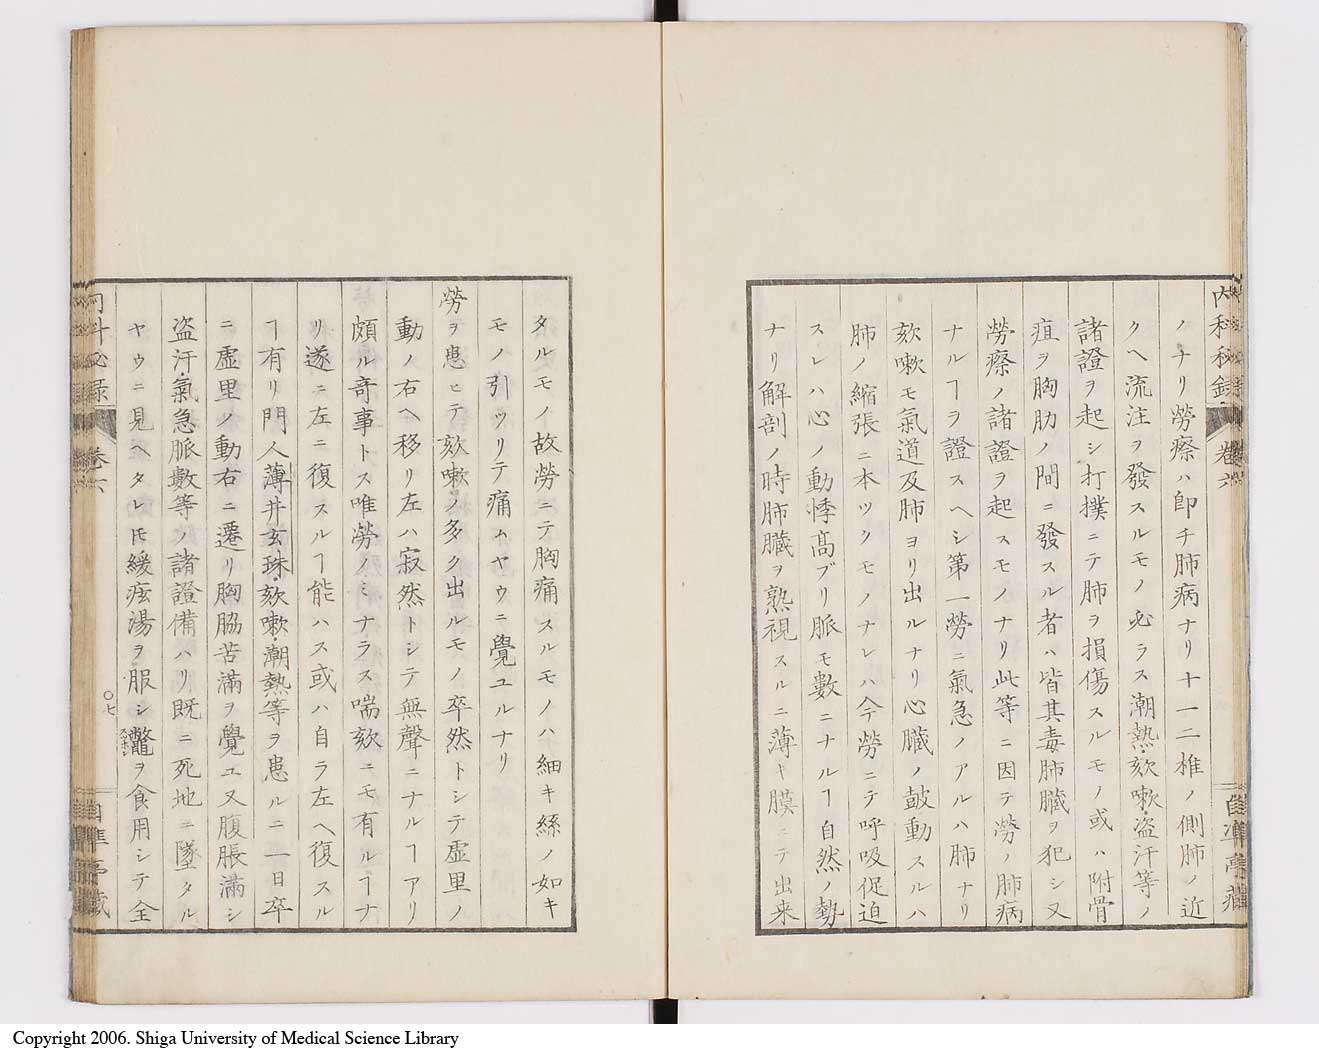 内科秘録 卷六 自準亭藏
ノナリ勞瘵ハ卽チ肺病ナリ十一二椎ノ側肺ノ近
クヘ流注ヲ發スルモノ必ラス潮熱欬嗽盗汗等ノ
諸證ヲ起シ打撲ニテ肺ヲ損傷スルモノ或ハ附骨
疽ヲ胸肋ノ間ニ發スル者ハ皆其毒肺臓ヲ犯シ又
勞瘵ノ諸證ヲ起スモノナリ此等ニ因テ勞ノ肺病
ナルヿヲ證スヘシ第一勞ニ氣急ノアルハ肺ナリ
欬嗽モ氣道及肺ヨリ出ルナリ心臓ノ鼓動スルハ
肺ノ縮張ニ本ツクモノナレハ今勞ニテ呼吸促迫
スレハ心ノ動悸高ブリ脈モ數ニナルヿ自然ノ勢
ナリ解剖ノ時肺臓ヲ熟視スルニ薄キ膜ニテ出来
タルモノ故勞ニテ胸痛スルモノハ細キ絲ノ如キ
モノ引ツリテ痛ムヤウニ覺ユルナリ
勞ヲ患ヒテ欬嗽ノ多ク出ルモノ卒然トシテ虚里ノ
動ノ右ヘ移リ左ハ寂然トシテ無聲ニナルヿアリ
頗ル竒事トス唯勞ノミナラス喘欬ニモ有ルヿナ
リ遂ニ左ニ復スルヿ能ハス或ハ自ラ左ヘ復スル
ヿ有リ門人薄井玄珠欬嗽潮熱等ヲ患ルニ一日卒
ニ虚里ノ動右ニ遷リ胸脇苦滿ヲ覺ユ又腹脹滿シ
盗汗氣急脈數等ノ諸證備ハリ既ニ死地ニ墜タル
ヤウニ見ヘタレ𪜈緩痃湯ヲ服シ鼈スッポンヲ食用シテ全
内科秘録 卷六 〇七 自準亭藏
Copyright 2006. Shiga University of Medical Science Library